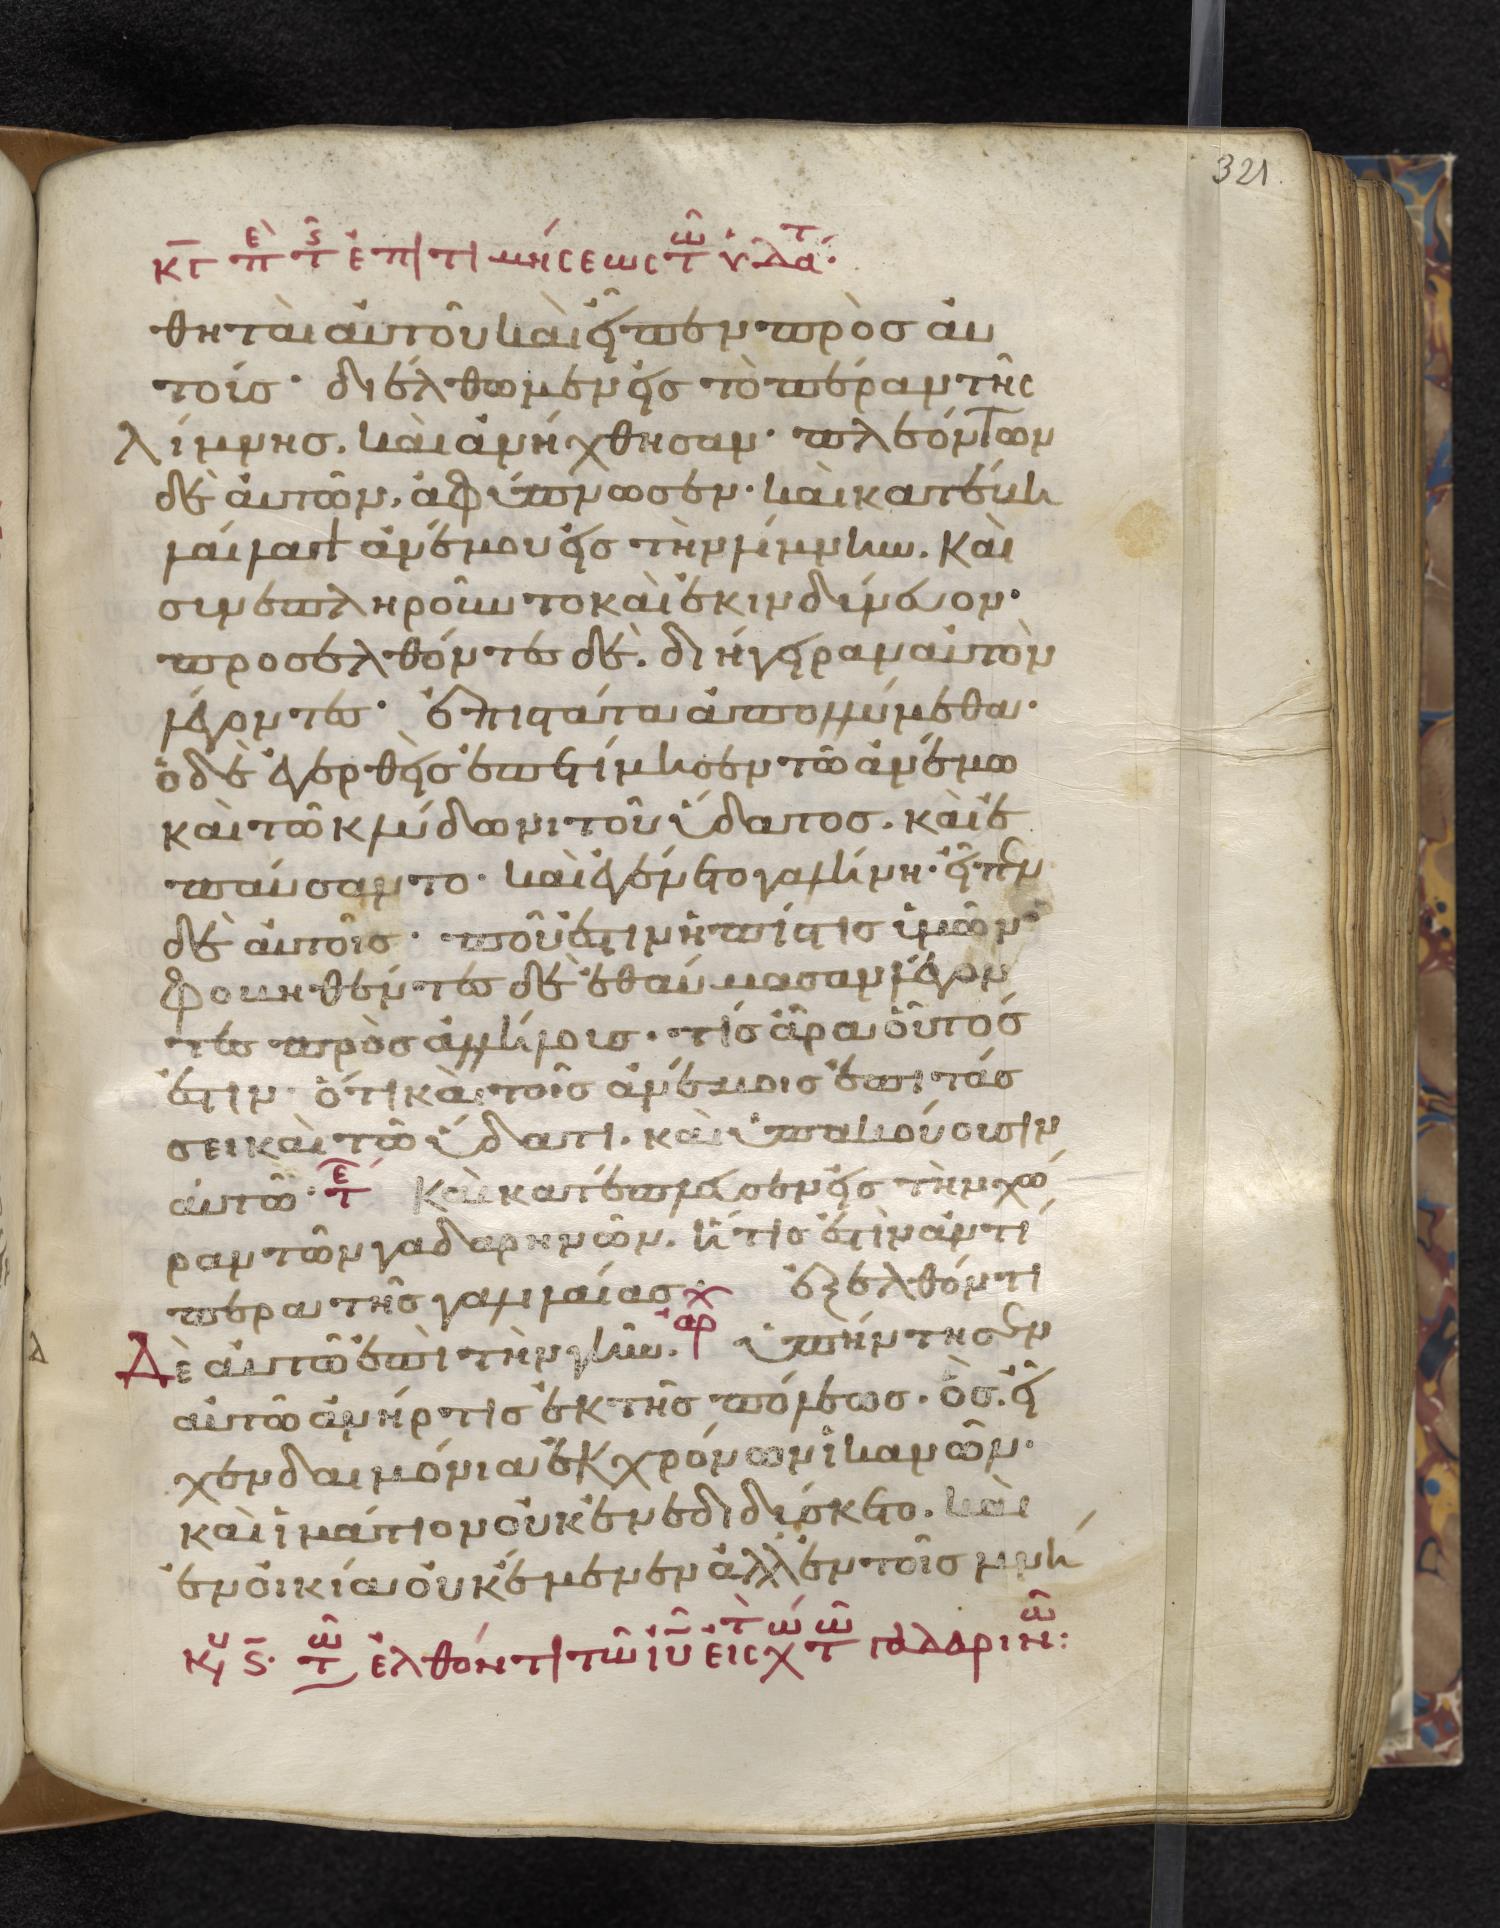 321
κγ περὶ τῆς ἐπιτιμήσεως τῶν ὑδάτ
θηταὶ αὐτοῦ καὶ εἶπεν πρὸς αὐ
τοίς· διέλθωμεν εἰς τὸ πέραν τῆς
λίμνης. καὶ ἀνήχθησαν· πλεόντων
δὲ αὐτῶν, ἀφύπνωσεν· καὶ κατέβη
λαίλαψ ἀνέμου εἰς τὴν λίμνην. καὶ
συνεπληροῦντο καὶ ἐκινδύνευον·
προσελθόντες δὲ. διήγειραν αὐτὸν
λέγοντες· ἐπιστάτα ἀπολλύμεθα·
ὁ δὲ ἐγερθεὶς ἐπετίμησεν τῶ ἀνέμω
καὶ τῶ κλύδωνι τοῦ ὕδατος. καὶ ἐ
παύσαντο· καὶ ἐγένετο γαλήνη· εἶπεν
δὲ αὐτοῖς· ποῦ ἐστιν ἡ πίστις ὑμῶν·
φοβηθέντες δὲ ἐθαύμασαν λέγον
τες πρὸς ἀλλήλους· τίς ἄρα οὗτός
ἐστιν· ὅτι καὶ τοῖς ἀνέμοις ἐπιτάσ
σει καὶ τῶ ὕδατι. καὶ ὑπακούουσιν
αὐτῶ· τε Καὶ κατέπλευσεν εἰς τὴν χώ
ραν τῶν γαδαρηνῶν. ἥτις ἐστὶν ἀντί
περα τῆς γαλιλαίας ἐξελθόντι
Δὲ αὐτῶ ἐπὶ τὴν γῆν. ἀρ ὑπήντησεν
αὐτῶ ἀνήρ τις ἐκ τῆς πόλεως. ὃς εἶ
χεν δαιμόνια ἐκ χρόνων ἱκανῶν·
καὶ ἱμάτιον οὐκ ἐνεδιδύσκετο. καὶ
ἐν οἰκία οὐκ ἔμενεν ἀλλ ἐν τοῖς μνή
Δ
κυ ϛ· τῶ ἐλθόντι τῶ ἰυ εἰς τ χώ τῶν γαδαριν: